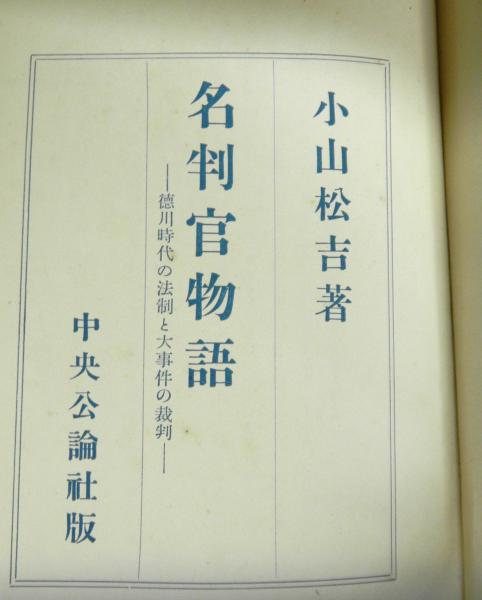 小山松吉著
名判官物語
―徳川時代の法制と大事件の裁判―
中央公論社版